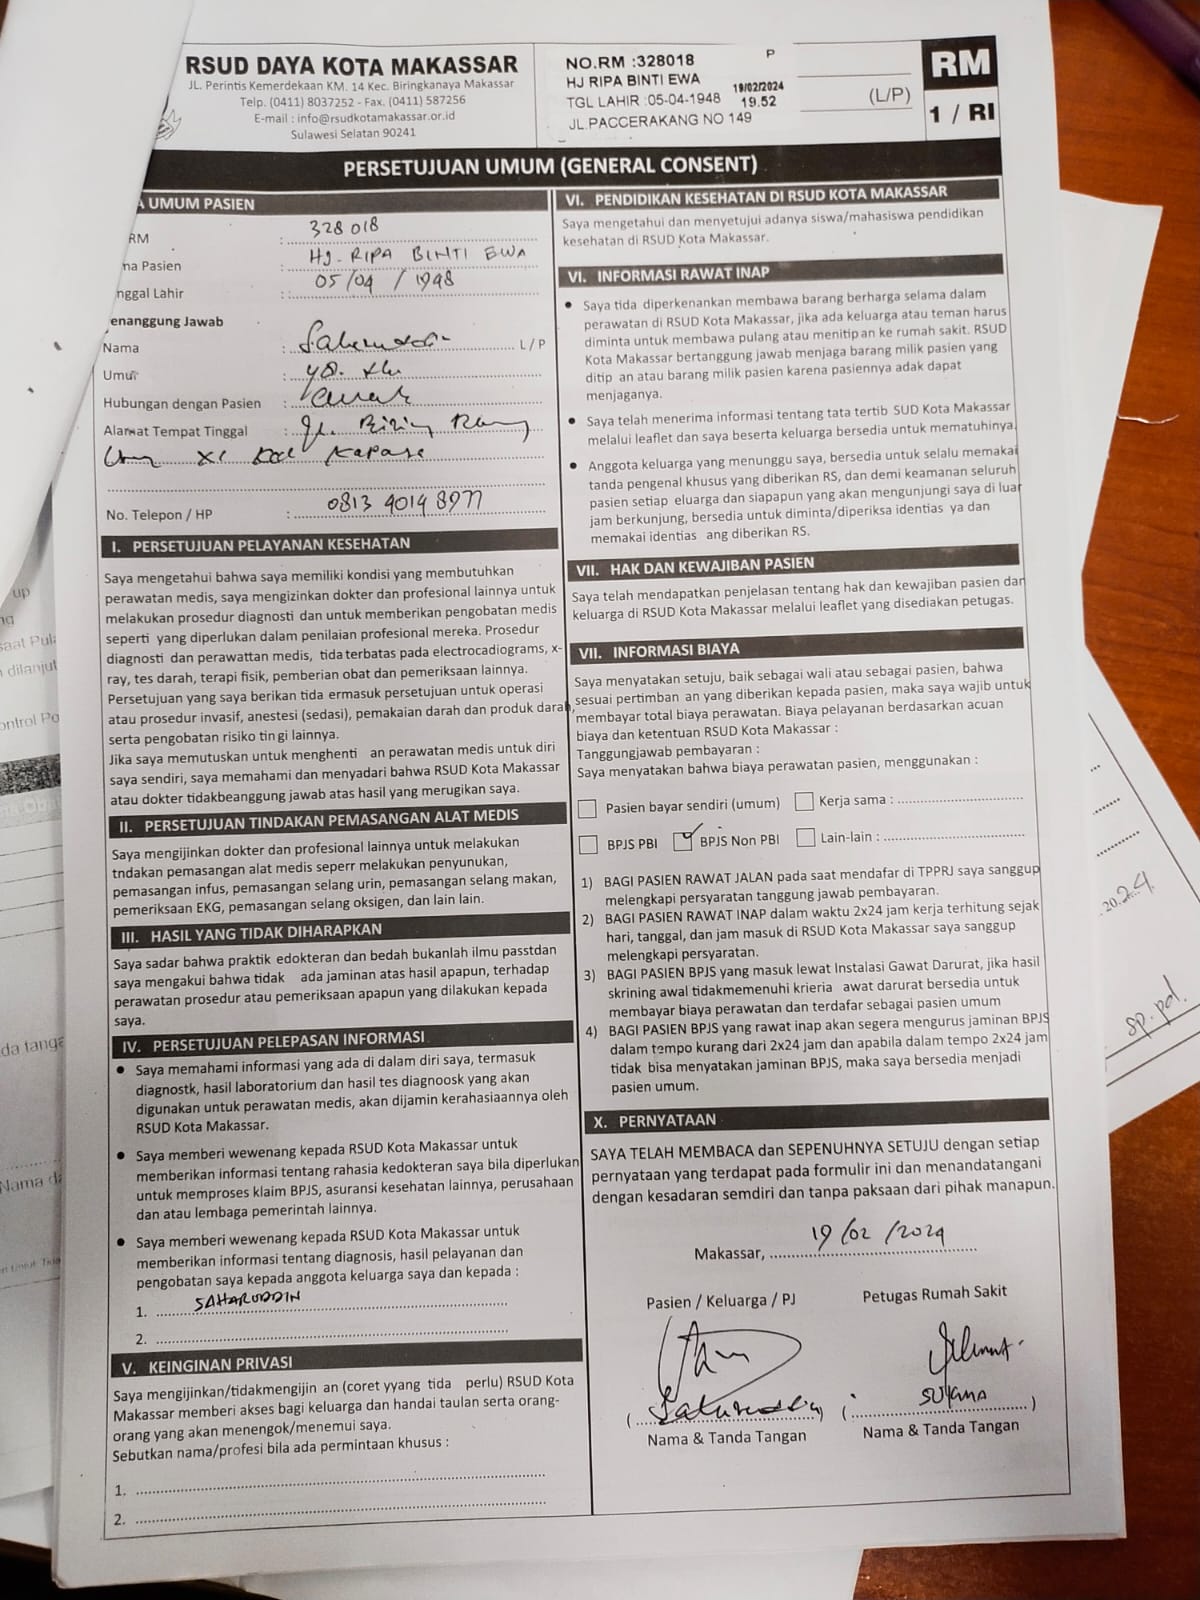 RSUD DAYA KOTA MAKASSAR
JL. Perintis Kemerdekaan KM. 14 Kec. Biringkanaya Makassar
Telp. (0411) 8037252 - Fax. (0411) 587256
E-mail : info@rsudkotamakassar.or.id
Sulawesi Selatan 90241
NO.RM :328018 P
HJ RIPA BINTI EWA
TGL LAHIR :05-04-1948
19/02/2024
19.52
JL.PACCERAKANG NO 149
(L/P)
RM
1 / RI
PERSETUJUAN UMUM (GENERAL CONSENT)
UMUM PASIEN
RM : 328018
Pasien : HJ. RIPA BINTI EWA
nggal Lahir : 05/04 / 1948
enanggung Jawab
Nama : Saharuddin L/P
Umur : 48. thn
Hubungan dengan Pasien :
Alamat Tempat Tinggal : Jl. Biring
XI Kapasa
No. Telepon / HP : 0813 4014 8977
I. PERSETUJUAN PELAYANAN KESEHATAN
Saya mengetahui bahwa saya memiliki kondisi yang membutuhkan
perawatan medis, saya mengizinkan dokter dan profesional lainnya untuk
melakukan prosedur diagnosti dan untuk memberikan pengobatan medis
seperti yang diperlukan dalam penilaian profesional mereka. Prosedur
diagnosti dan perawattan medis, tida terbatas pada electrocadiograms, x-
ray, tes darah, terapi fisik, pemberian obat dan pemeriksaan lainnya.
Persetujuan yang saya berikan tida ermasuk persetujuan untuk operasi
atau prosedur invasif, anestesi (sedasi), pemakaian darah dan produk darah,
serta pengobatan risiko tin gi lainnya.
Jika saya memutuskan untuk menghenti an perawatan medis untuk diri
saya sendiri, saya memahami dan menyadari bahwa RSUD Kota Makassar
atau dokter tidakbeanggung jawab atas hasil yang merugikan saya.
II. PERSETUJUAN TINDAKAN PEMASANGAN ALAT MEDIS
Saya mengijinkan dokter dan profesional lainnya untuk melakukan
tndakan pemasangan alat medis seperr melakukan penyunukan,
pemasangan infus, pemasangan selang urin, pemasangan selang makan,
pemeriksaan EKG, pemasangan selang oksigen, dan lain lain.
III. HASIL YANG TIDAK DIHARAPKAN
Saya sadar bahwa praktik edokteran dan bedah bukanlah ilmu passtdan
saya mengakui bahwa tidak ada jaminan atas hasil apapun, terhadap
perawatan prosedur atau pemeriksaan apapun yang dilakukan kepada
saya.
IV. PERSETUJUAN PELEPASAN INFORMASI
• Saya memahami informasi yang ada di dalam diri saya, termasuk
diagnostk, hasil laboratorium dan hasil tes diagnoosk yang akan
digunakan untuk perawatan medis, akan dijamin kerahasiaannya oleh
RSUD Kota Makassar.
• Saya memberi wewenang kepada RSUD Kota Makassar untuk
memberikan informasi tentang rahasia kedokteran saya bila diperlukan
untuk memproses klaim BPJS, asuransi kesehatan lainnya, perusahaan
dan atau lembaga pemerintah lainnya.
• Saya memberi wewenang kepada RSUD Kota Makassar untuk
memberikan informasi tentang diagnosis, hasil pelayanan dan
pengobatan saya kepada anggota keluarga saya dan kepada :
1. SAHARUDDIN
2.
V. KEINGINAN PRIVASI
Saya mengijinkan/tidakmengijin an (coret yyang tida perlu) RSUD Kota
Makassar memberi akses bagi keluarga dan handai taulan serta orang-
orang yang akan menengok/menemui saya.
Sebutkan nama/profesi bila ada permintaan khusus :
1.
2.
VI. PENDIDIKAN KESEHATAN DI RSUD KOTA MAKASSAR
Saya mengetahui dan menyetujui adanya siswa/mahasiswa pendidikan
kesehatan di RSUD Kota Makassar.
VI. INFORMASI RAWAT INAP
• Saya tida diperkenankan membawa barang berharga selama dalam
perawatan di RSUD Kota Makassar, jika ada keluarga atau teman harus
diminta untuk membawa pulang atau menitip an ke rumah sakit. RSUD
Kota Makassar bertanggung jawab menjaga barang milik pasien yang
ditip an atau barang milik pasien karena pasiennya adak dapat
menjaganya.
• Saya telah menerima informasi tentang tata tertib SUD Kota Makassar
melalui leaflet dan saya beserta keluarga bersedia untuk mematuhinya.
• Anggota keluarga yang menunggu saya, bersedia untuk selalu memakai
tanda pengenal khusus yang diberikan RS, dan demi keamanan seluruh
pasien setiap eluarga dan siapapun yang akan mengunjungi saya di luar
jam berkunjung, bersedia untuk diminta/diperiksa identias ya dan
memakai identias ang diberikan RS.
VII. HAK DAN KEWAJIBAN PASIEN
Saya telah mendapatkan penjelasan tentang hak dan kewajiban pasien dan
keluarga di RSUD Kota Makassar melalui leaflet yang disediakan petugas.
VII. INFORMASI BIAYA
Saya menyatakan setuju, baik sebagai wali atau sebagai pasien, bahwa
sesuai pertimban an yang diberikan kepada pasien, maka saya wajib untuk
membayar total biaya perawatan. Biaya pelayanan berdasarkan acuan
biaya dan ketentuan RSUD Kota Makassar :
Tanggungjawab pembayaran :
Saya menyatakan bahwa biaya perawatan pasien, menggunakan :
Pasien bayar sendiri (umum) Kerja sama :
BPJS PBI BPJS Non PBI Lain-lain :
1) BAGI PASIEN RAWAT JALAN pada saat mendafar di TPPRJ saya sanggup
melengkapi persyaratan tanggung jawab pembayaran.
2) BAGI PASIEN RAWAT INAP dalam waktu 2x24 jam kerja terhitung sejak
hari, tanggal, dan jam masuk di RSUD Kota Makassar saya sanggup
melengkapi persyaratan.
3) BAGI PASIEN BPJS yang masuk lewat Instalasi Gawat Darurat, jika hasil
skrining awal tidakmemenuhi krieria awat darurat bersedia untuk
membayar biaya perawatan dan terdafar sebagai pasien umum
4) BAGI PASIEN BPJS yang rawat inap akan segera mengurus jaminan BPJS
dalam tempo kurang dari 2x24 jam dan apabila dalam tempo 2x24 jam
tidak bisa menyatakan jaminan BPJS, maka saya bersedia menjadi
pasien umum.
X. PERNYATAAN
SAYA TELAH MEMBACA dan SEPENUHNYA SETUJU dengan setiap
pernyataan yang terdapat pada formulir ini dan menandatangani
dengan kesadaran semdiri dan tanpa paksaan dari pihak manapun.
Makassar, 19/02/2024
Pasien / Keluarga / PJ Petugas Rumah Sakit
(Saharuddin) (
)
Nama & Tanda Tangan Nama & Tanda Tangan
up
saat Pula
dilanjut
ontrol Po
da tanga
Nama da
2024
sp.pd.